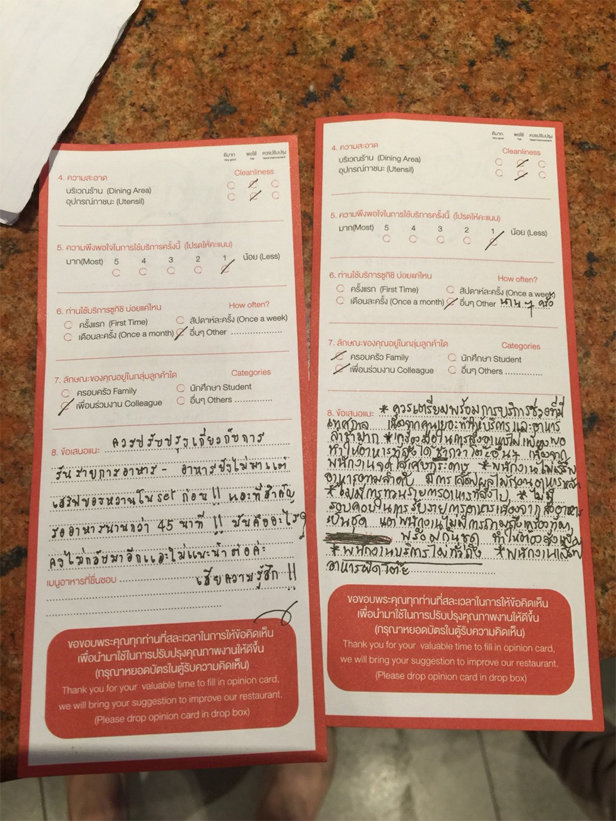 ดีมาก พอใช้ ควรปรับปรุง
4. ความสะอาด Cleanliness
บริเวณร้าน (Dining Area)
อุปกรณ์ภาชนะ (Utensil)
5. ความพึงพอใจในการใช้บริการครั้งนี้ (โปรดให้คะแนน)
มาก(Most) 5 4 3 2 1 น้อย (Less)
6. ท่านใช้บริการซูกิชิ บ่อยแค่ไหน How often?
ครั้งแรก (First Time) สัปดาห์ละครั้ง (Once a week)
เดือนละครั้ง (Once a month) อื่นๆ Other
7. ลักษณะของคุณอยู่ในกลุ่มลูกค้าใด Categories
ครอบครัว Family นักศึกษา Student
เพื่อนร่วมงาน Colleague อื่นๆ Others
ควรปรับปรุงเกี่ยวกับการ
8. ข้อเสนอแนะ
รับรายการอาหาร - อาหารยังไม่มาแต่
เสริฟของหวานใน set ก่อน !! และที่สำคัญ
รออาหารนานกว่า 45 นาที !! มันคืออะไร?
คงไม่กลับมาอีกและไม่แนะนำต่อค่ะ
เมนูอาหารที่ชื่นชอบ เสียความรู้สึก !!
ขอขอบพระคุณทุกท่านที่สละเวลาในการให้ข้อคิดเห็น
เพื่อนำมาใช้ในการปรับปรุงคุณภาพงานให้ดีขึ้น
(กรุณาหยอดบัตรในตู้รับความคิดเห็น)
Thank you for your valuable time to fill in opinion card,
we will bring your suggestion to improve our restaurant.
(Please drop opinion card in drop box)
ดีมาก พอใช้ ควรปรับปรุง
4. ความสะอาด Cleanliness
บริเวณร้าน (Dining Area)
อุปกรณ์ภาชนะ (Utensil)
5. ความพึงพอใจในการใช้บริการครั้งนี้ (โปรดให้คะแนน)
มาก(Most) 5 4 3 2 1 น้อย (Less)
6. ท่านใช้บริการซูกิชิ บ่อยแค่ไหน How often?
ครั้งแรก (First Time) สัปดาห์ละครั้ง (Once a week)
เดือนละครั้ง (Once a month) อื่นๆ Other นานๆ ครั้ง
7. ลักษณะของคุณอยู่ในกลุ่มลูกค้าใด Categories
ครอบครัว Family นักศึกษา Student
เพื่อนร่วมงาน Colleague อื่นๆ Others
8. ข้อเสนอแนะ * ควรเตรียมพร้อมการบริการช่วงที่มี
เทศกาล เนื่องจากคนเยอะทำให้บริการและอาหาร
ล่าช้ามาก
พนักงานจดใส่เศษกระดาษ * พนักงานไม่เสิร์ฟ
อาหารตามลำดับ
* ไม่มีการทวนรายการอาหารที่สั่งไป * ไม่มี
* พนักงานบริการไม่ทั่วถึง * พนักงานเสิร์ฟ
อาหารผิดโต๊ะ
ขอขอบพระคุณทุกท่านที่สละเวลาในการให้ข้อคิดเห็น
เพื่อนำมาใช้ในการปรับปรุงคุณภาพงานให้ดีขึ้น
(กรุณาหยอดบัตรในตู้รับความคิดเห็น)
Thank you for your valuable time to fill in opinion card,
we will bring your suggestion to improve our restaurant.
(Please drop opinion card in drop box)